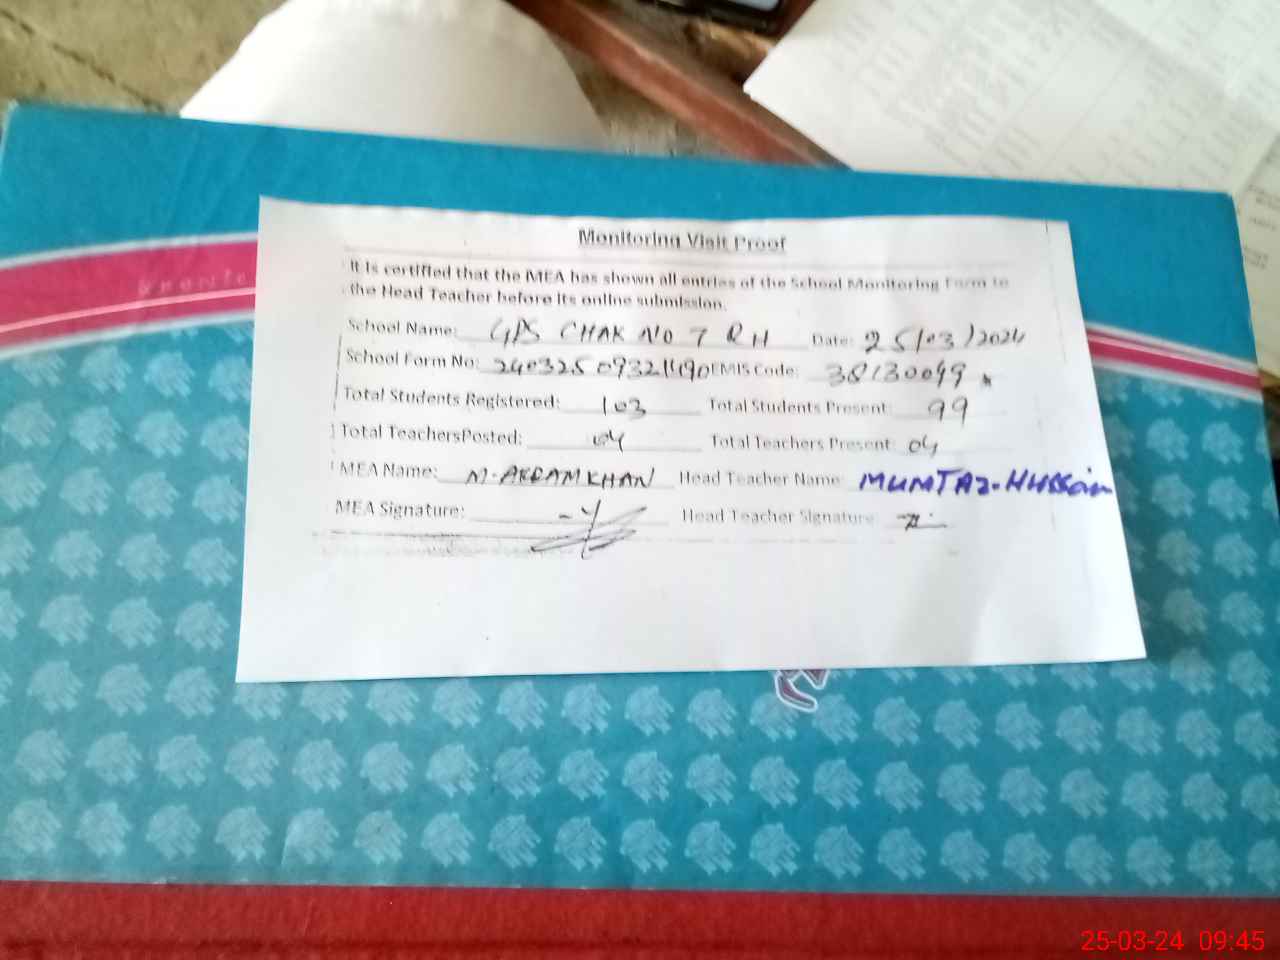 Monitoring Visit Proof
It is certified that the MEA has shown all entries of the School Monitoring Form to
the Head Teacher before its online submission.
School Name: GPS CHAK NO 7 RH Date: 25/03/2024
School Form No: EMIS Code: 38130099
Total Students Registered: 103 Total Students Present: 99
Total TeachersPosted: 04 Total Teachers Present: 04
MEA Name: M. AKRAM KHAN Head Teacher Name: MUMTAZ-HUSSain
MEA Signature: Head Teacher Signature:
25-03-24 09:45